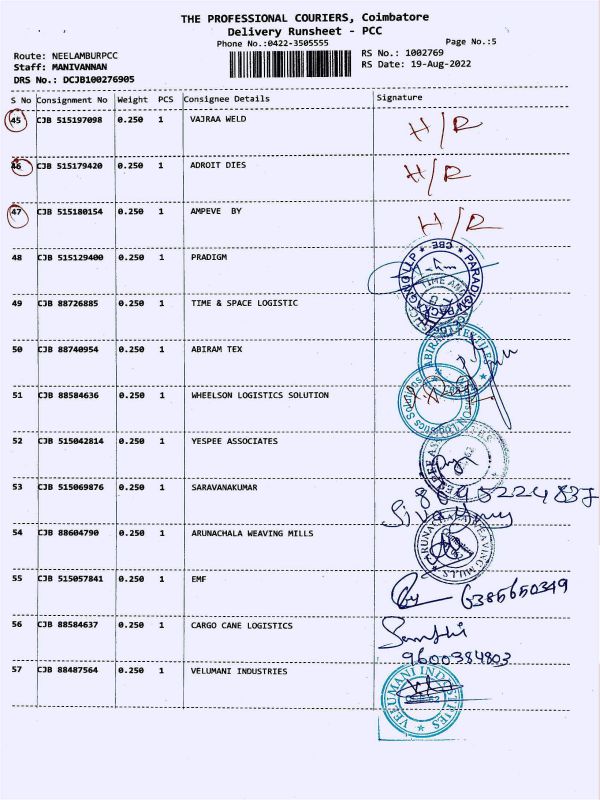 THE PROFESSIONAL COURIERS, Coimbatore
Delivery Runsheet - PCC
Phone No.:0422-3505555
Page No.:5
Route: NEELAMBURPCC
RS No.: 1002769
Staff: MANIVANNAN
RS Date: 19-Aug-2022
DRS No.: DCJB100276905
S No Consignment No Weight PCS Consignee Details Signature
45 CJB 515197098 0.250 1 VAJRAA WELD H/R
46 CJB 515179420 0.250 1 ADROIT DIES H/R
47 CJB 515180154 0.250 1 AMPEVE BY H/R
48 CJB 515129400 0.250 1 PRADIGM
49 CJB 88726885 0.250 1 TIME & SPACE LOGISTIC
TIME AND
50 CJB 88740954 0.250 1 ABIRAM TEX
ABIRAM TEXTILES
51 CJB 88584636 0.250 1 WHEELSON LOGISTICS SOLUTION
52 CJB 515042814 0.250 1 YESPEE ASSOCIATES
53 CJB 515069876 0.250 1 SARAVANAKUMAR
54 CJB 88604790 0.250 1 ARUNACHALA WEAVING MILLS
ARUNACHALA WEAVING MILLS
55 CJB 515057841 0.250 1 EMF
6385650349
56 CJB 88584637 0.250 1 CARGO CANE LOGISTICS
Santhi
9600384803
57 CJB 88487564 0.250 1 VELUMANI INDUSTRIES
VELUMANI INDUSTRIES